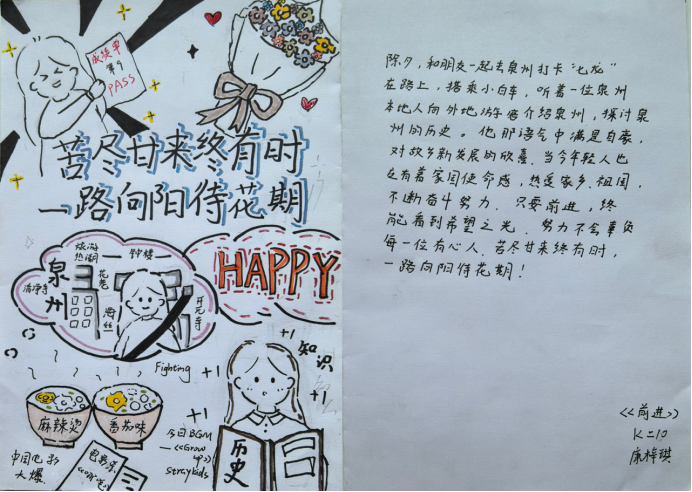 成绩单
第9
PASS
苦尽甘来终有时
一路向阳待花期
旅游
热潮
钟楼
泉州
清净寺
花巷
海丝
开元寺
HAPPY
Fighting
+1
+1
知识
+1
+1
麻辣烫
番茄味
今日BGM
—《Grow
up》
straykids
历史
中国电影
大爆
除夕，和朋友一起去泉州打卡“七龙”
在路上，搭乘小白车，听着一位泉州
本地人向外地游客介绍泉州，探讨泉
州的历史。他那语气中满是自豪，
对故乡新发展的欣喜、当今年轻人也
应有着家国使命感，热爱家乡、祖国，
不断奋斗努力、只要前进，终
能看到希望之光、努力不会辜负
每一位有心人、苦尽甘来终有时，
一路向阳待花期！
《前进》
K二10
康梓琪